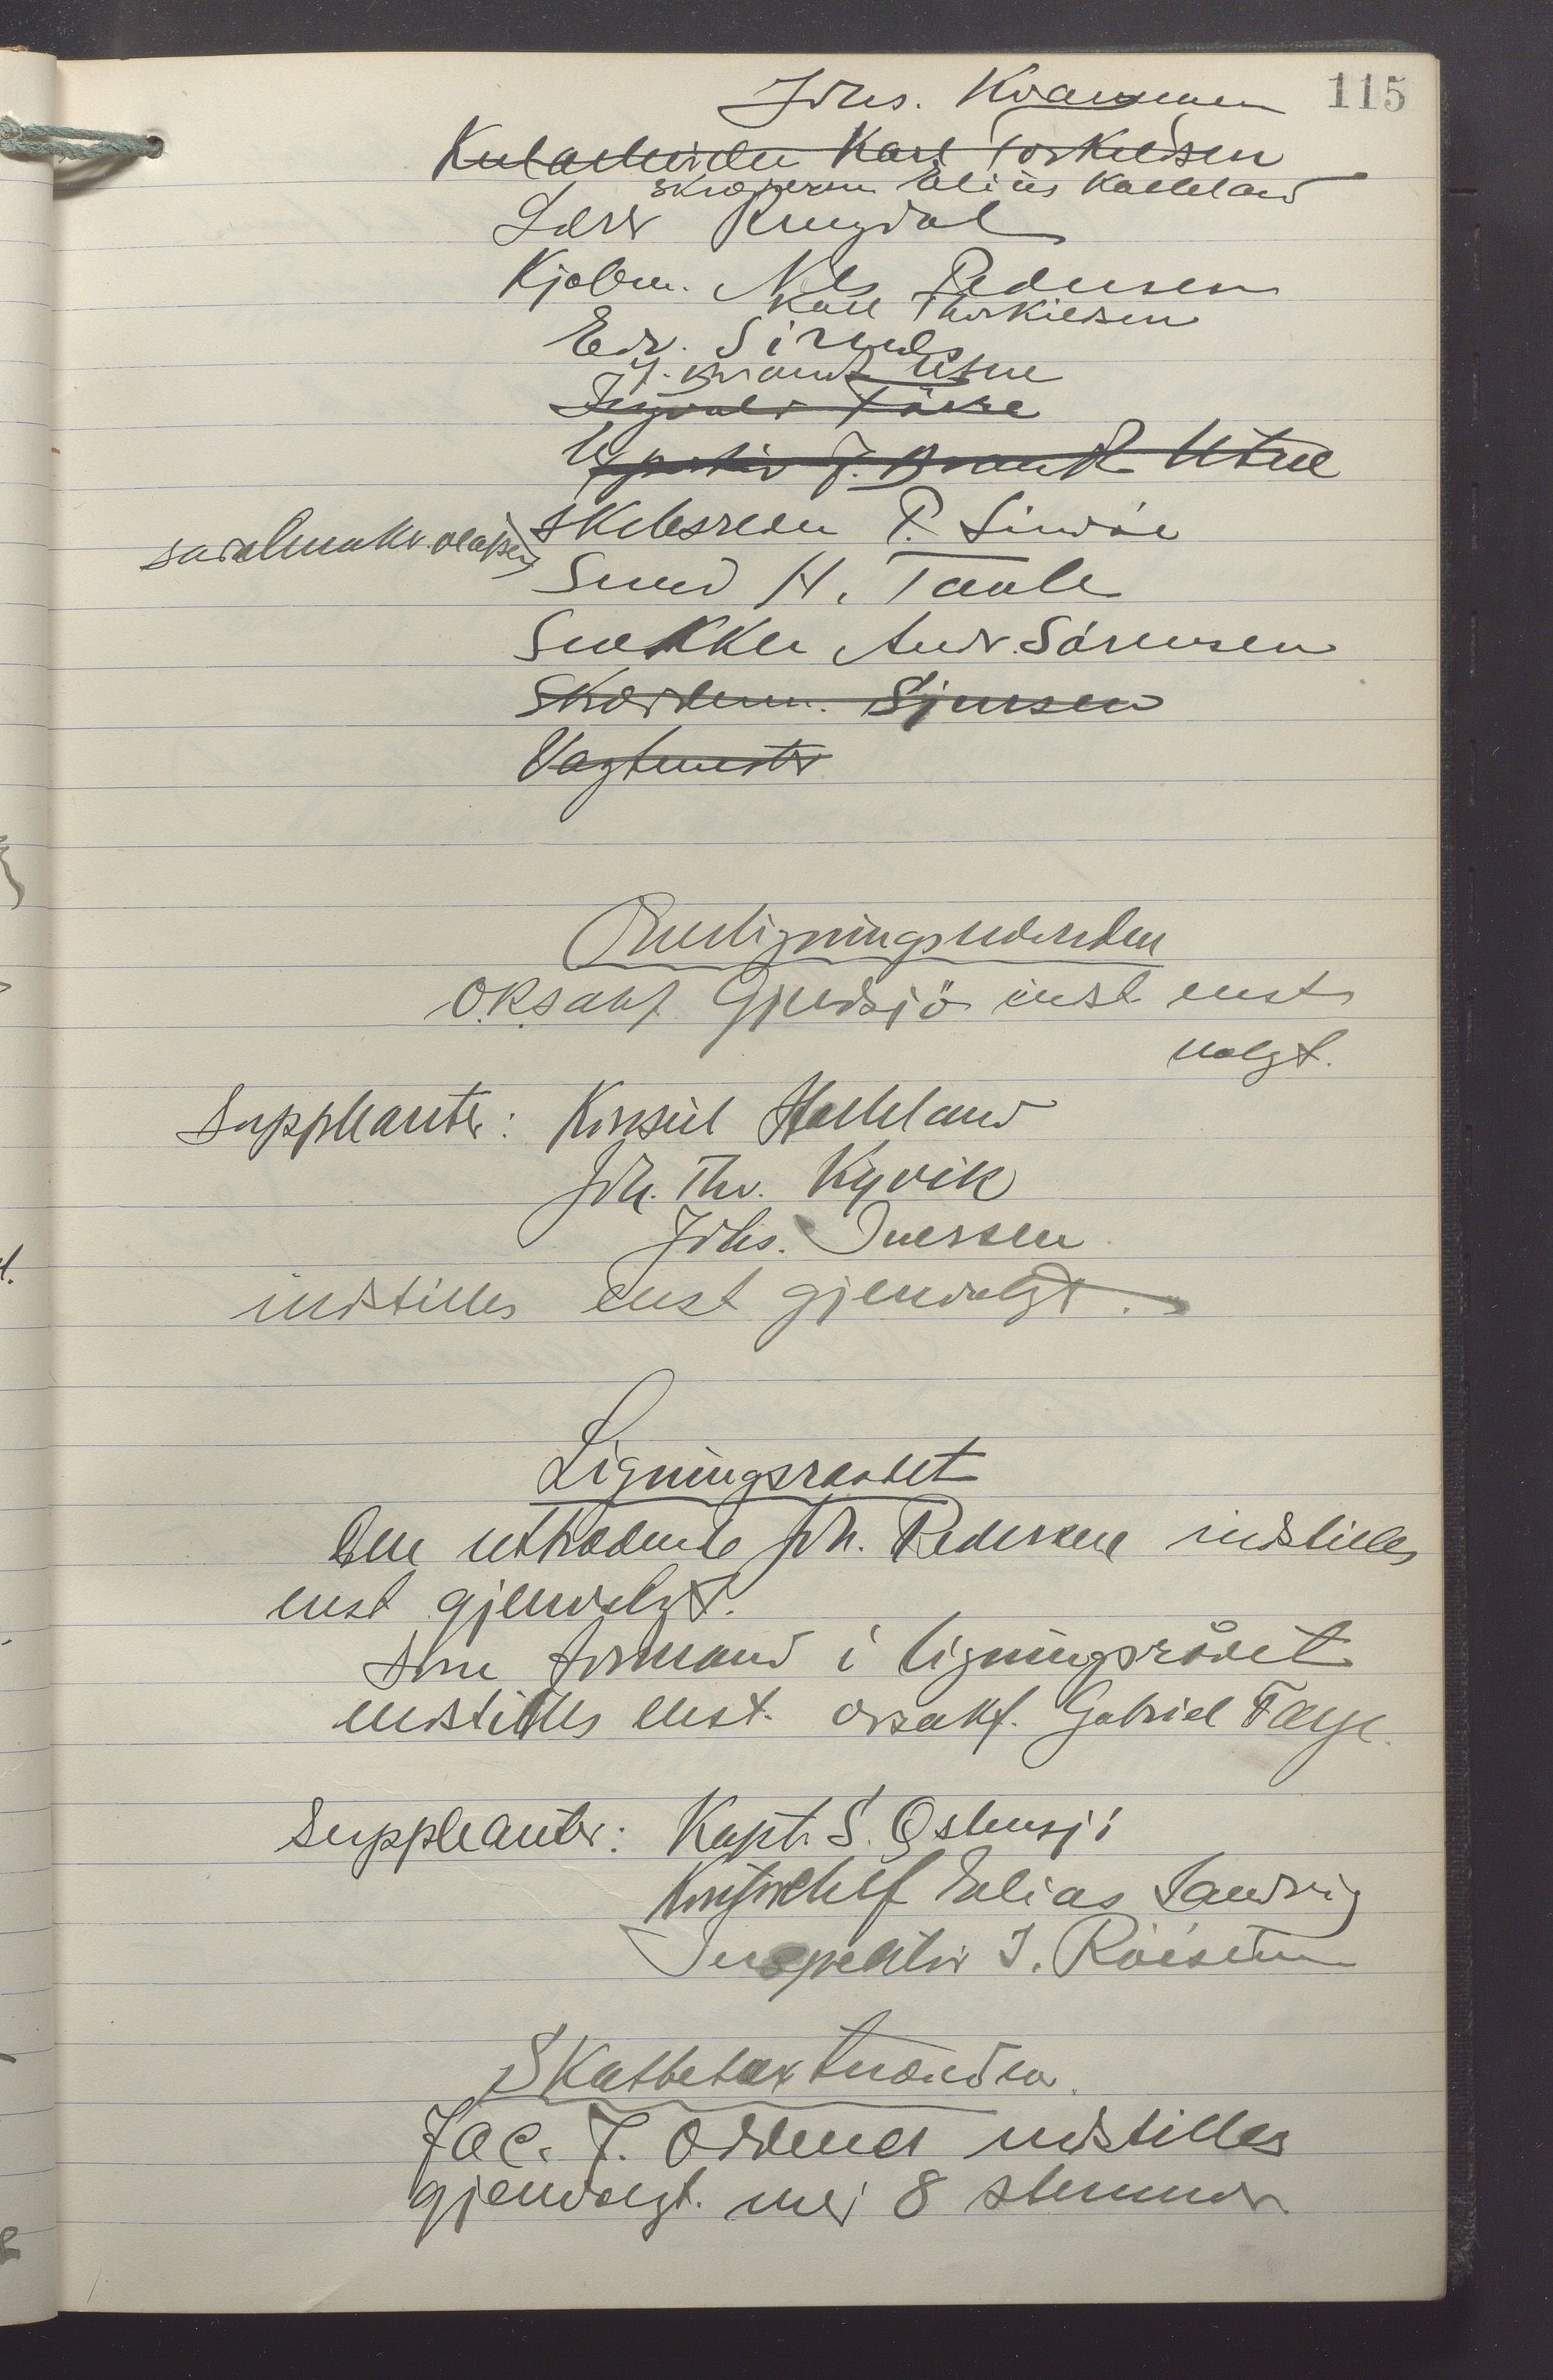 115
Johs. Kvammen
Karl Torkildsen
Elias Kalleland
Lærer Ringdal
Kjøbm. Nils Pedersen
Karl Thorkildsen
Edv. Sirnes
J. Brandt Utne
Ingvald
J. Brandt Utne
Skibsreder P. Lindøe
sadelmaker Olausen
Smed H. Taule
Snekker Andr. Sørensen
Skrædderm. Sjursen
Vagtmester
Overligningsnevnden
O.R.sakf. Gjerdsjö indst enst
valgt.
Suppleanter: Konsul Halleland
Joh. Thv. Kyvik
Johs. Iversen
indstilles enst gjenvalgt.
Ligningsraadet
Den uttrædende Joh. Pedersen indstilles
enst gjenvalgt.
Som formand i ligningsrådet
indstilles enst. orsakf. Gabriel Faye.
Suppleanter: Kapt. S. Østensjö
Kontorchef Elias Sandvig
Inspektør I. Röisum
Skattetakstmænder
Jac. J. Oddenes indstilles
gjenvalgt. med 8 stemmer